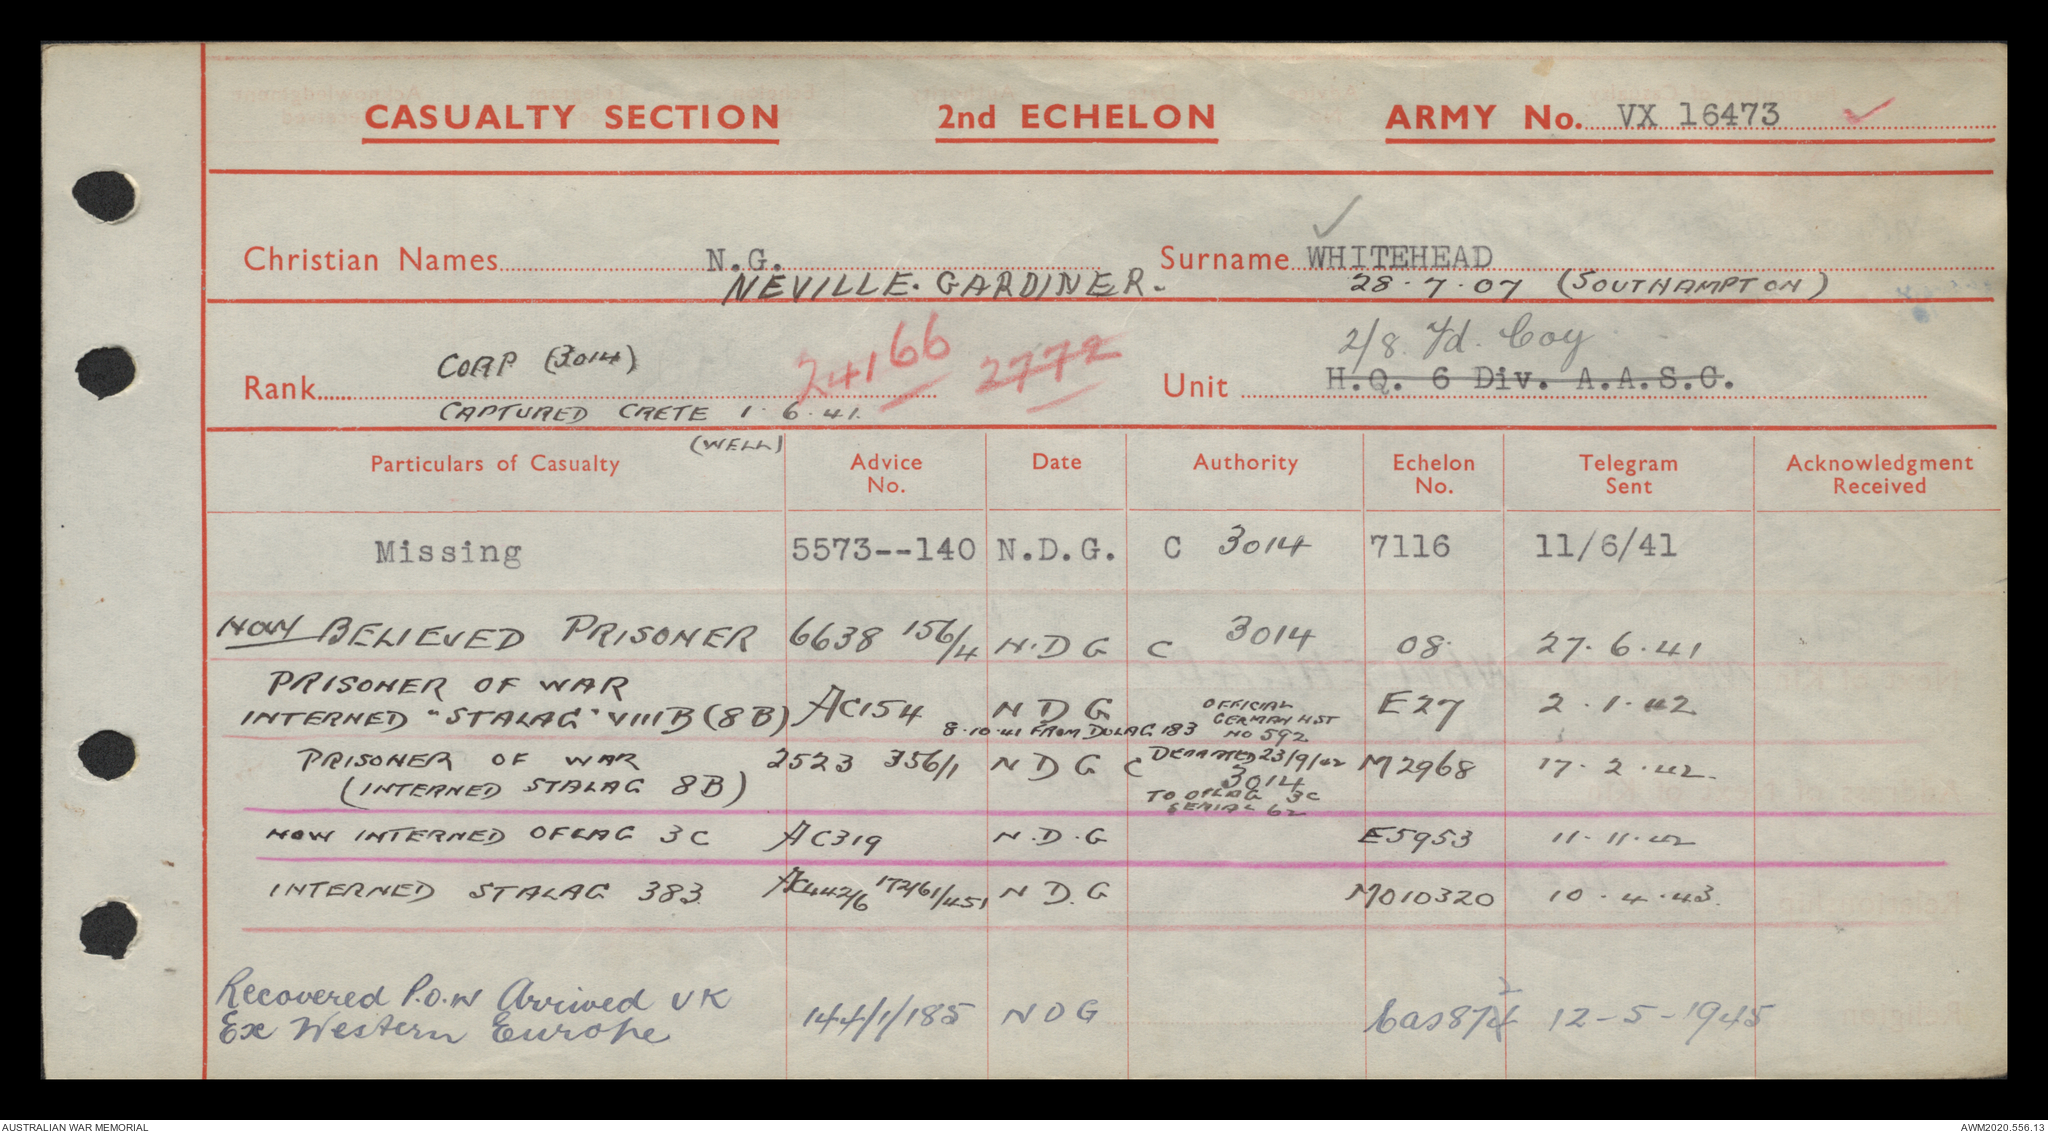 CASUALTY SECTION 2nd ECHELON ARMY No. VX 16473
Christian Names N.G. Surname WHITEHEAD
NEVILLE. GARDINER. 28.7.07 (SOUTHAMPTON)
2/8. Fd. Coy
Rank CORP (3014) 24166 2772 Unit H.Q. 6 Div. A.A.S.C.
CAPTURED CRETE 1.6.41.
(WELL)
Particulars of Casualty Advice No. Date Authority Echelon No. Telegram Sent Acknowledgment Received
Missing 5573--140 N.D.G. C 3014 7116 11/6/41
NOW BELIEVED PRISONER 6638 156/4 N.D G C 3014 08. 27.6.41
PRISONER OF WAR
INTERNED "STALAG" VIIIB (8B) AC154 N D G OFFICIAL GERMAN LIST NO 592 E27 2.1.42
8.10.41 FROM DULAG 183
PRISONER OF WAR 2523 356/1 N D G C DEPARTED 23/9/42 M2968 17.2.42.
(INTERNED STALAG 8B) 3014
TO OFLAG 3C
SERIAL 62
NOW INTERNED OFLAG 3C AC319 N.D.G E5953 11.11.42
INTERNED STALAG 383. AC442/6 172/61/451 N D.G M010320 10.4.43.
Recovered P.O.W Arrived UK
Ex Western Europe 144/1/185 N D G Cas 872 12-5-1945
AUSTRALIAN WAR MEMORIAL AWM2020.556.13